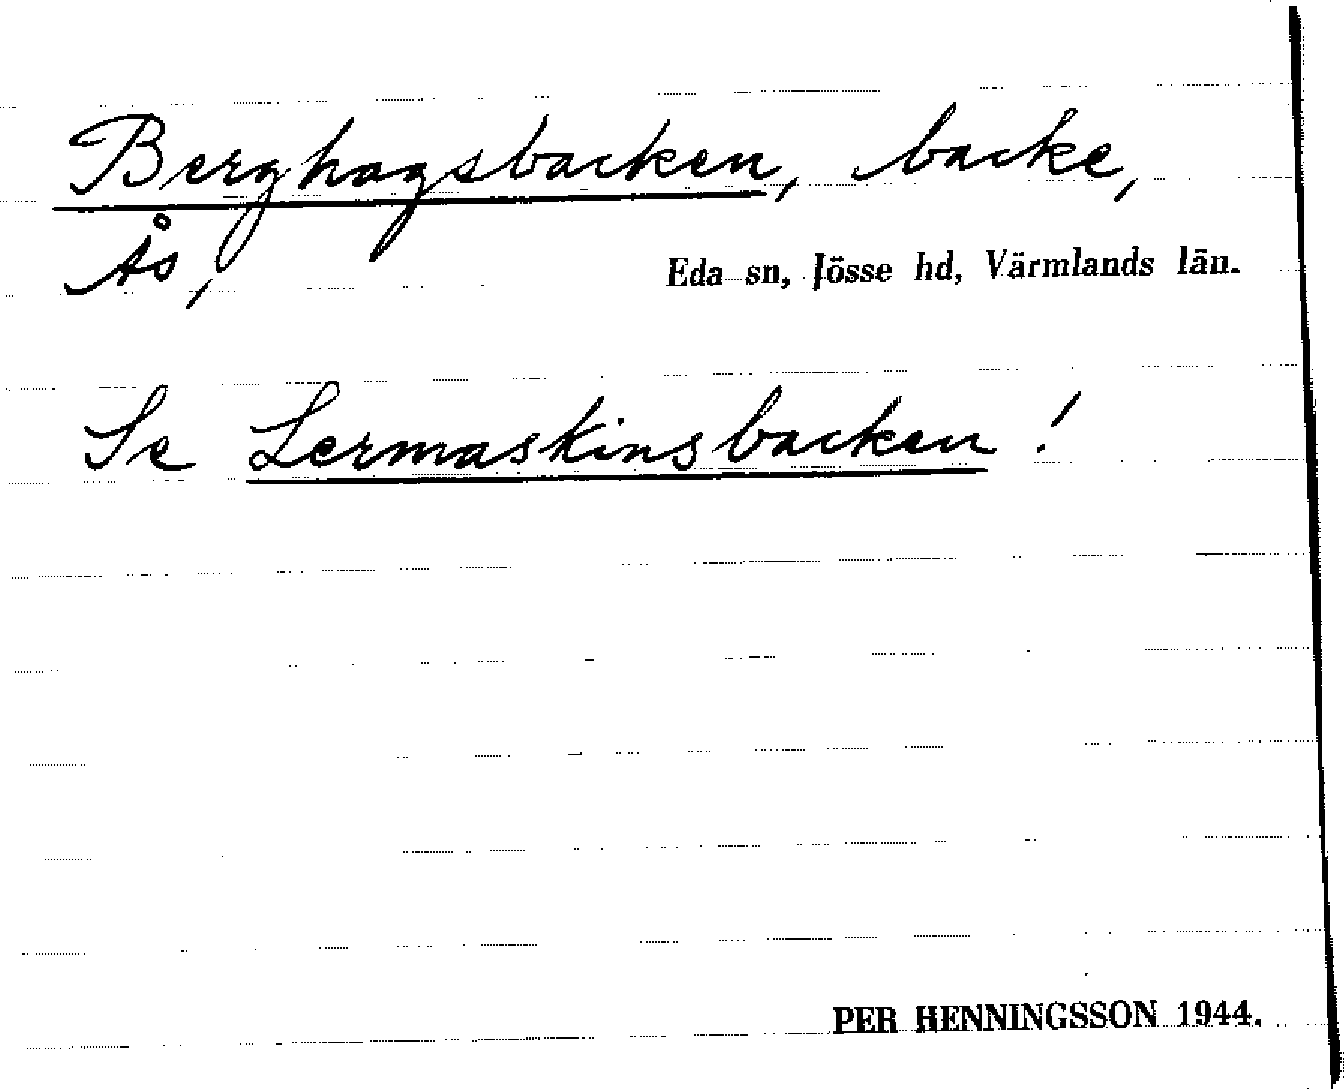 Berghagsbacken, backe,
Ås,
Eda sn, Jösse hd, Värmlands län.
Se Lermaskinsbacken!
PER HENNINGSSON 1944.